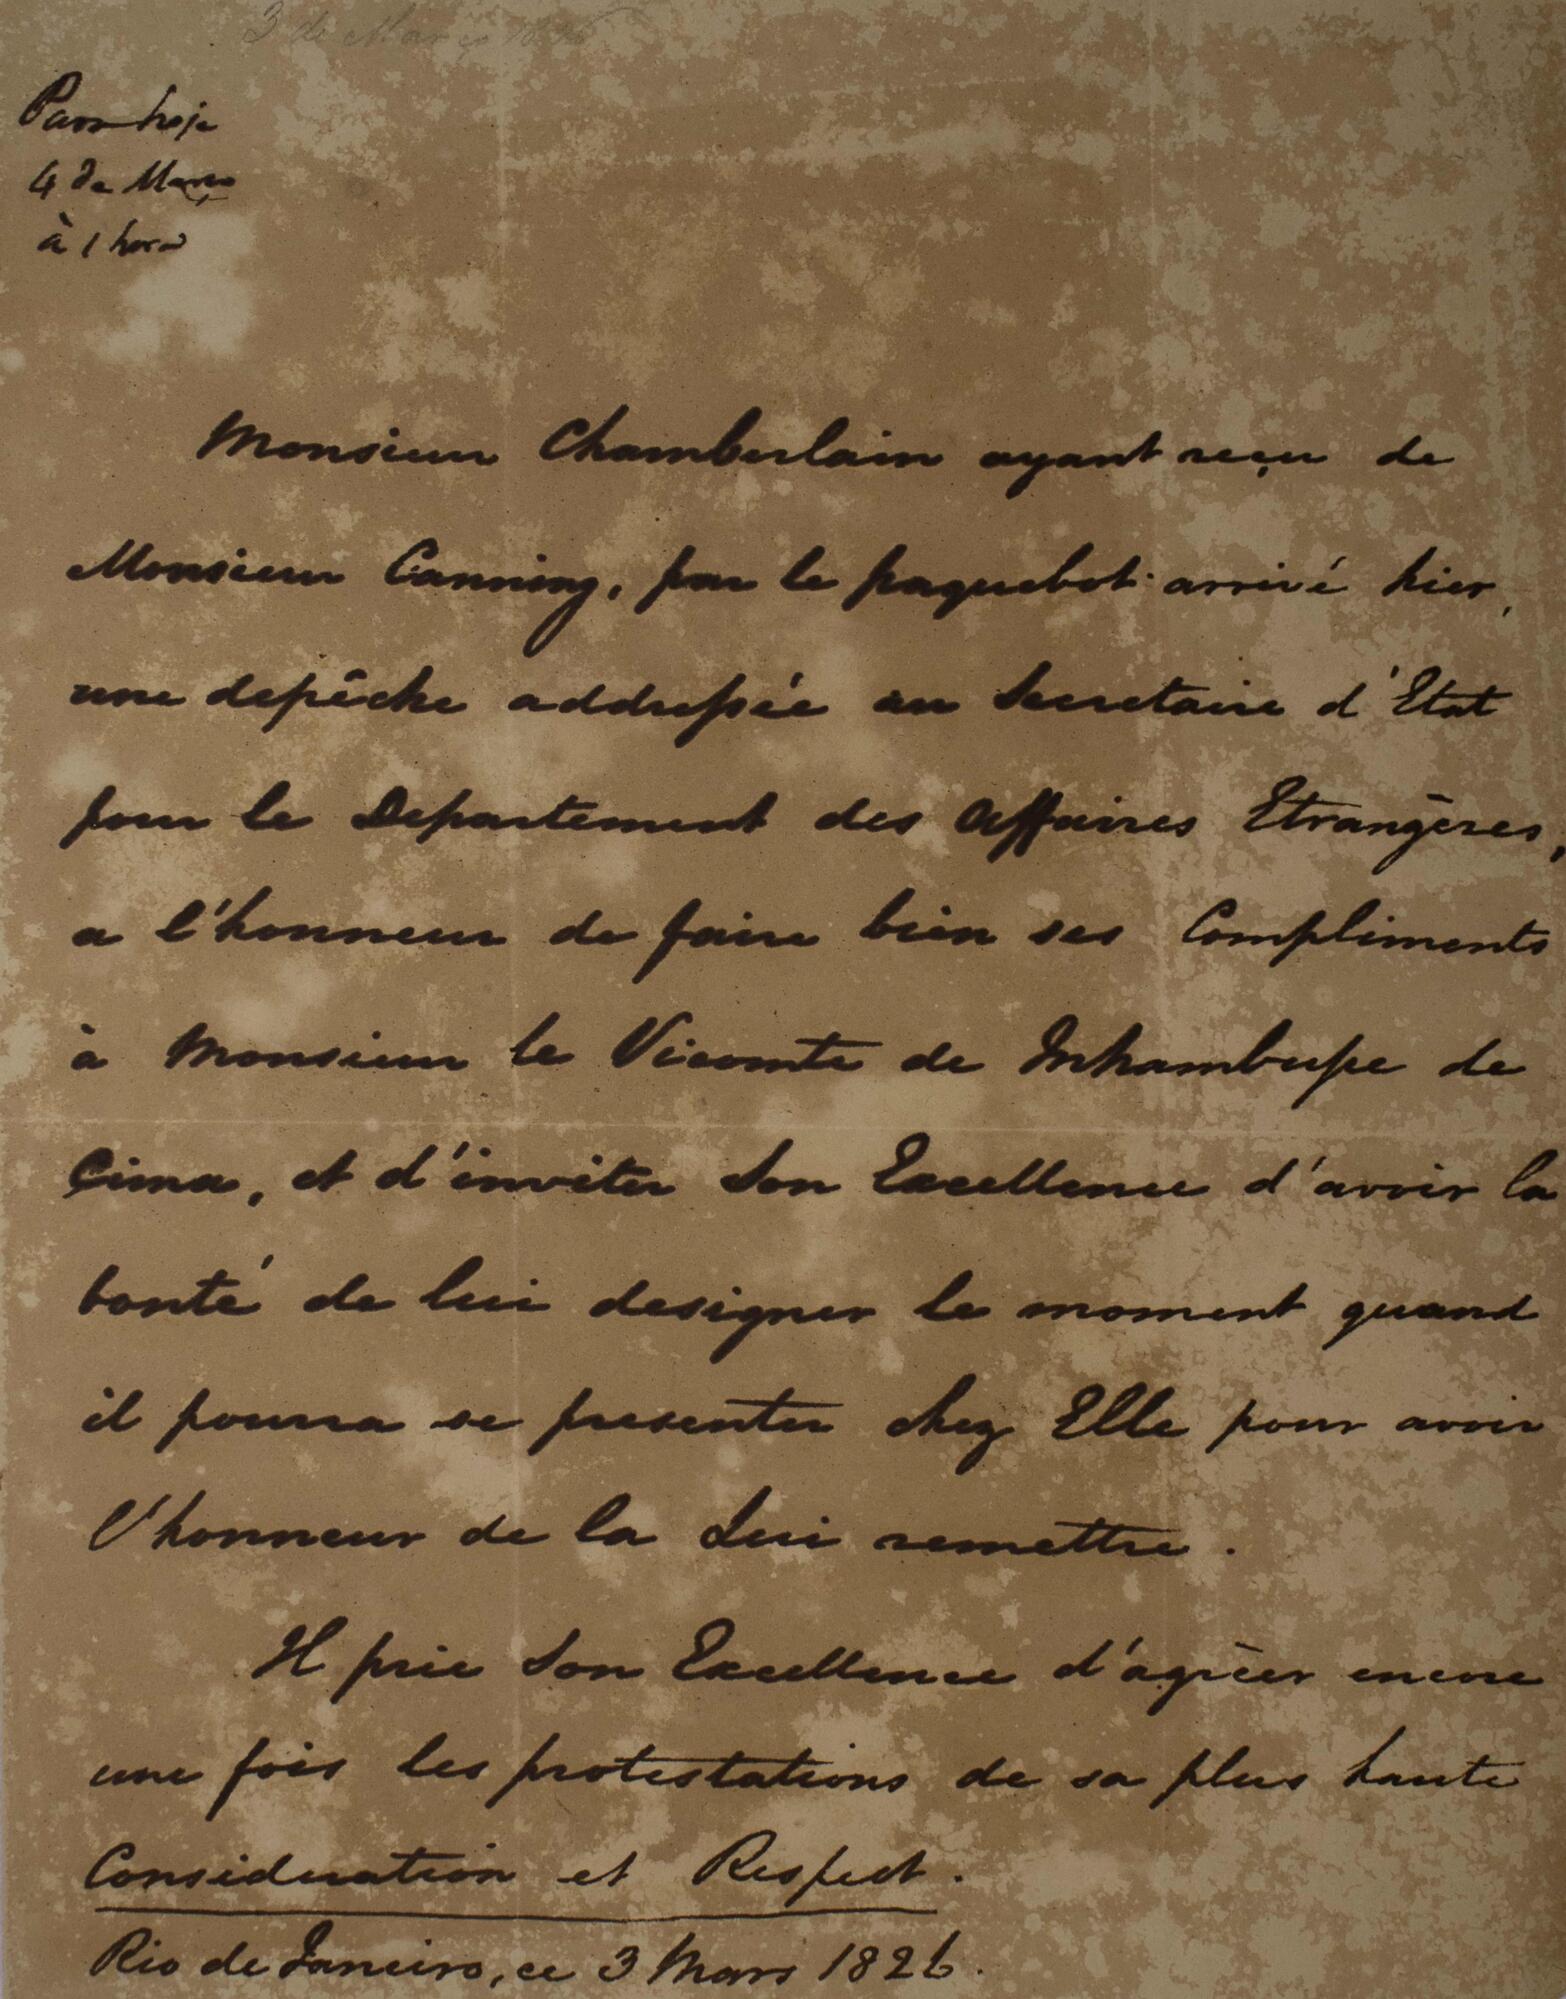 3 de Março 1826
Para hoje
4 de Março
à 1 hora
Monsieur Chamberlain ayant reçu de
Monsieur Canning, par le paquebot arrivé hier,
une depêche addressée au Secretaire d'Etat
pour le Departement des Affaires Etrangères,
a l'honneur de faire bien ses Compliments
à Monsieur le Vicomte de Inhambupe de
Çima, et d'inviter Son Excellence d'avoir la
bonté de lui designer le moment quand
il pourra se presenter chez Elle pour avoir
l'honneur de la Lui remettre.
Il prie Son Excellence d'agrèer encore
une fois les protestations de sa plus haute
Consideration et Respect.
Rio de Janeiro, ce 3 Mars 1826.